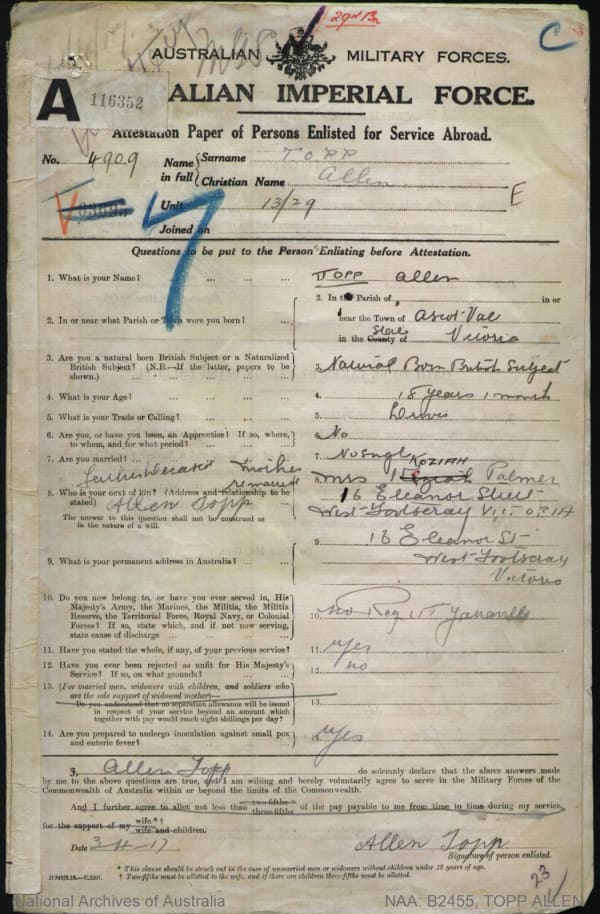 29th Bn
C
AUSTRALIAN MILITARY FORCES.
A 116352
ALIAN IMPERIAL FORCE.
Attestation Paper of Persons Enlisted for Service Abroad.
No. 4909 Name in full { Surname TOPP
Christian Name Allen
Unit 13/29 E
Joined on
Questions to be put to the Person Enlisting before Attestation.
1. What is your Name? ... ... ... Topp Allen
2. In or near what Parish or Town were you born? ... 2. In the Parish of, in or
near the Town of Ascot Vale
in the County of State Victoria
3. Are you a natural born British Subject or a Naturalized British Subject? (N.B.—If the latter, papers to be shown.) ... 3. Natural Born British Subject
4. What is your Age? ... ... ... 4. 18 years 1 month
5. What is your Trade or Calling? ... ... 5.
6. Are you, or have you been, an Apprentice? If so, where, to whom, and for what period? ... ... 6. No
7. Are you married? 7. No Single
Father Deceased Mother remarried
8. Who is your next of kin? (Address and relationship to be stated) 8. Mrs KOZIAH Palmer
Allen Topp 16 Eleanor Street
The answer to this question shall not be construed as in the nature of a will. West Footscray VICTORIA
9. What is your permanent address in Australia? ... 9. 16 Eleanor St
West Footscray
Victoria
10. Do you now belong to, or have you ever served in, His Majesty's Army, the Marines, the Militia, the Militia Reserve, the Territorial Force, Royal Navy, or Colonial Forces? If so, state which, and if not now serving, state cause of discharge ... 10. no
11. Have you stated the whole, if any, of your previous service? 11. yes
12. Have you ever been rejected as unfit for His Majesty's Service? If so, on what grounds? ... 12. no
13. (For married men, widowers with children, and soldiers who are the sole support of widowed mother)—
Do you understand that no separation allowance will be issued in respect of your service beyond an amount which together with pay would reach eight shillings per day? 13.
14. Are you prepared to undergo inoculation against small pox and enteric fever? ... 14. yes
I, Allen Topp do solemnly declare that the above answers made
by me to the above questions are true, and I am willing and hereby voluntarily agree to serve in the Military Forces of the
Commonwealth of Australia within or beyond the limits of the Commonwealth.
And I further agree to allot not less than two-fifths three-fifths of the pay payable to me from time to time during my service
for the support of my wife*† wife and children.
Date 3-4-17 Allen Topp
Signature of person enlisted.
* This clause should be struck out in the case of unmarried men or widowers without children under 18 years of age.
† Two-fifths must be allotted to the wife, and if there are children three-fifths must be allotted.
23
National Archives of Australia NAA: B2455, TOPP ALLEN